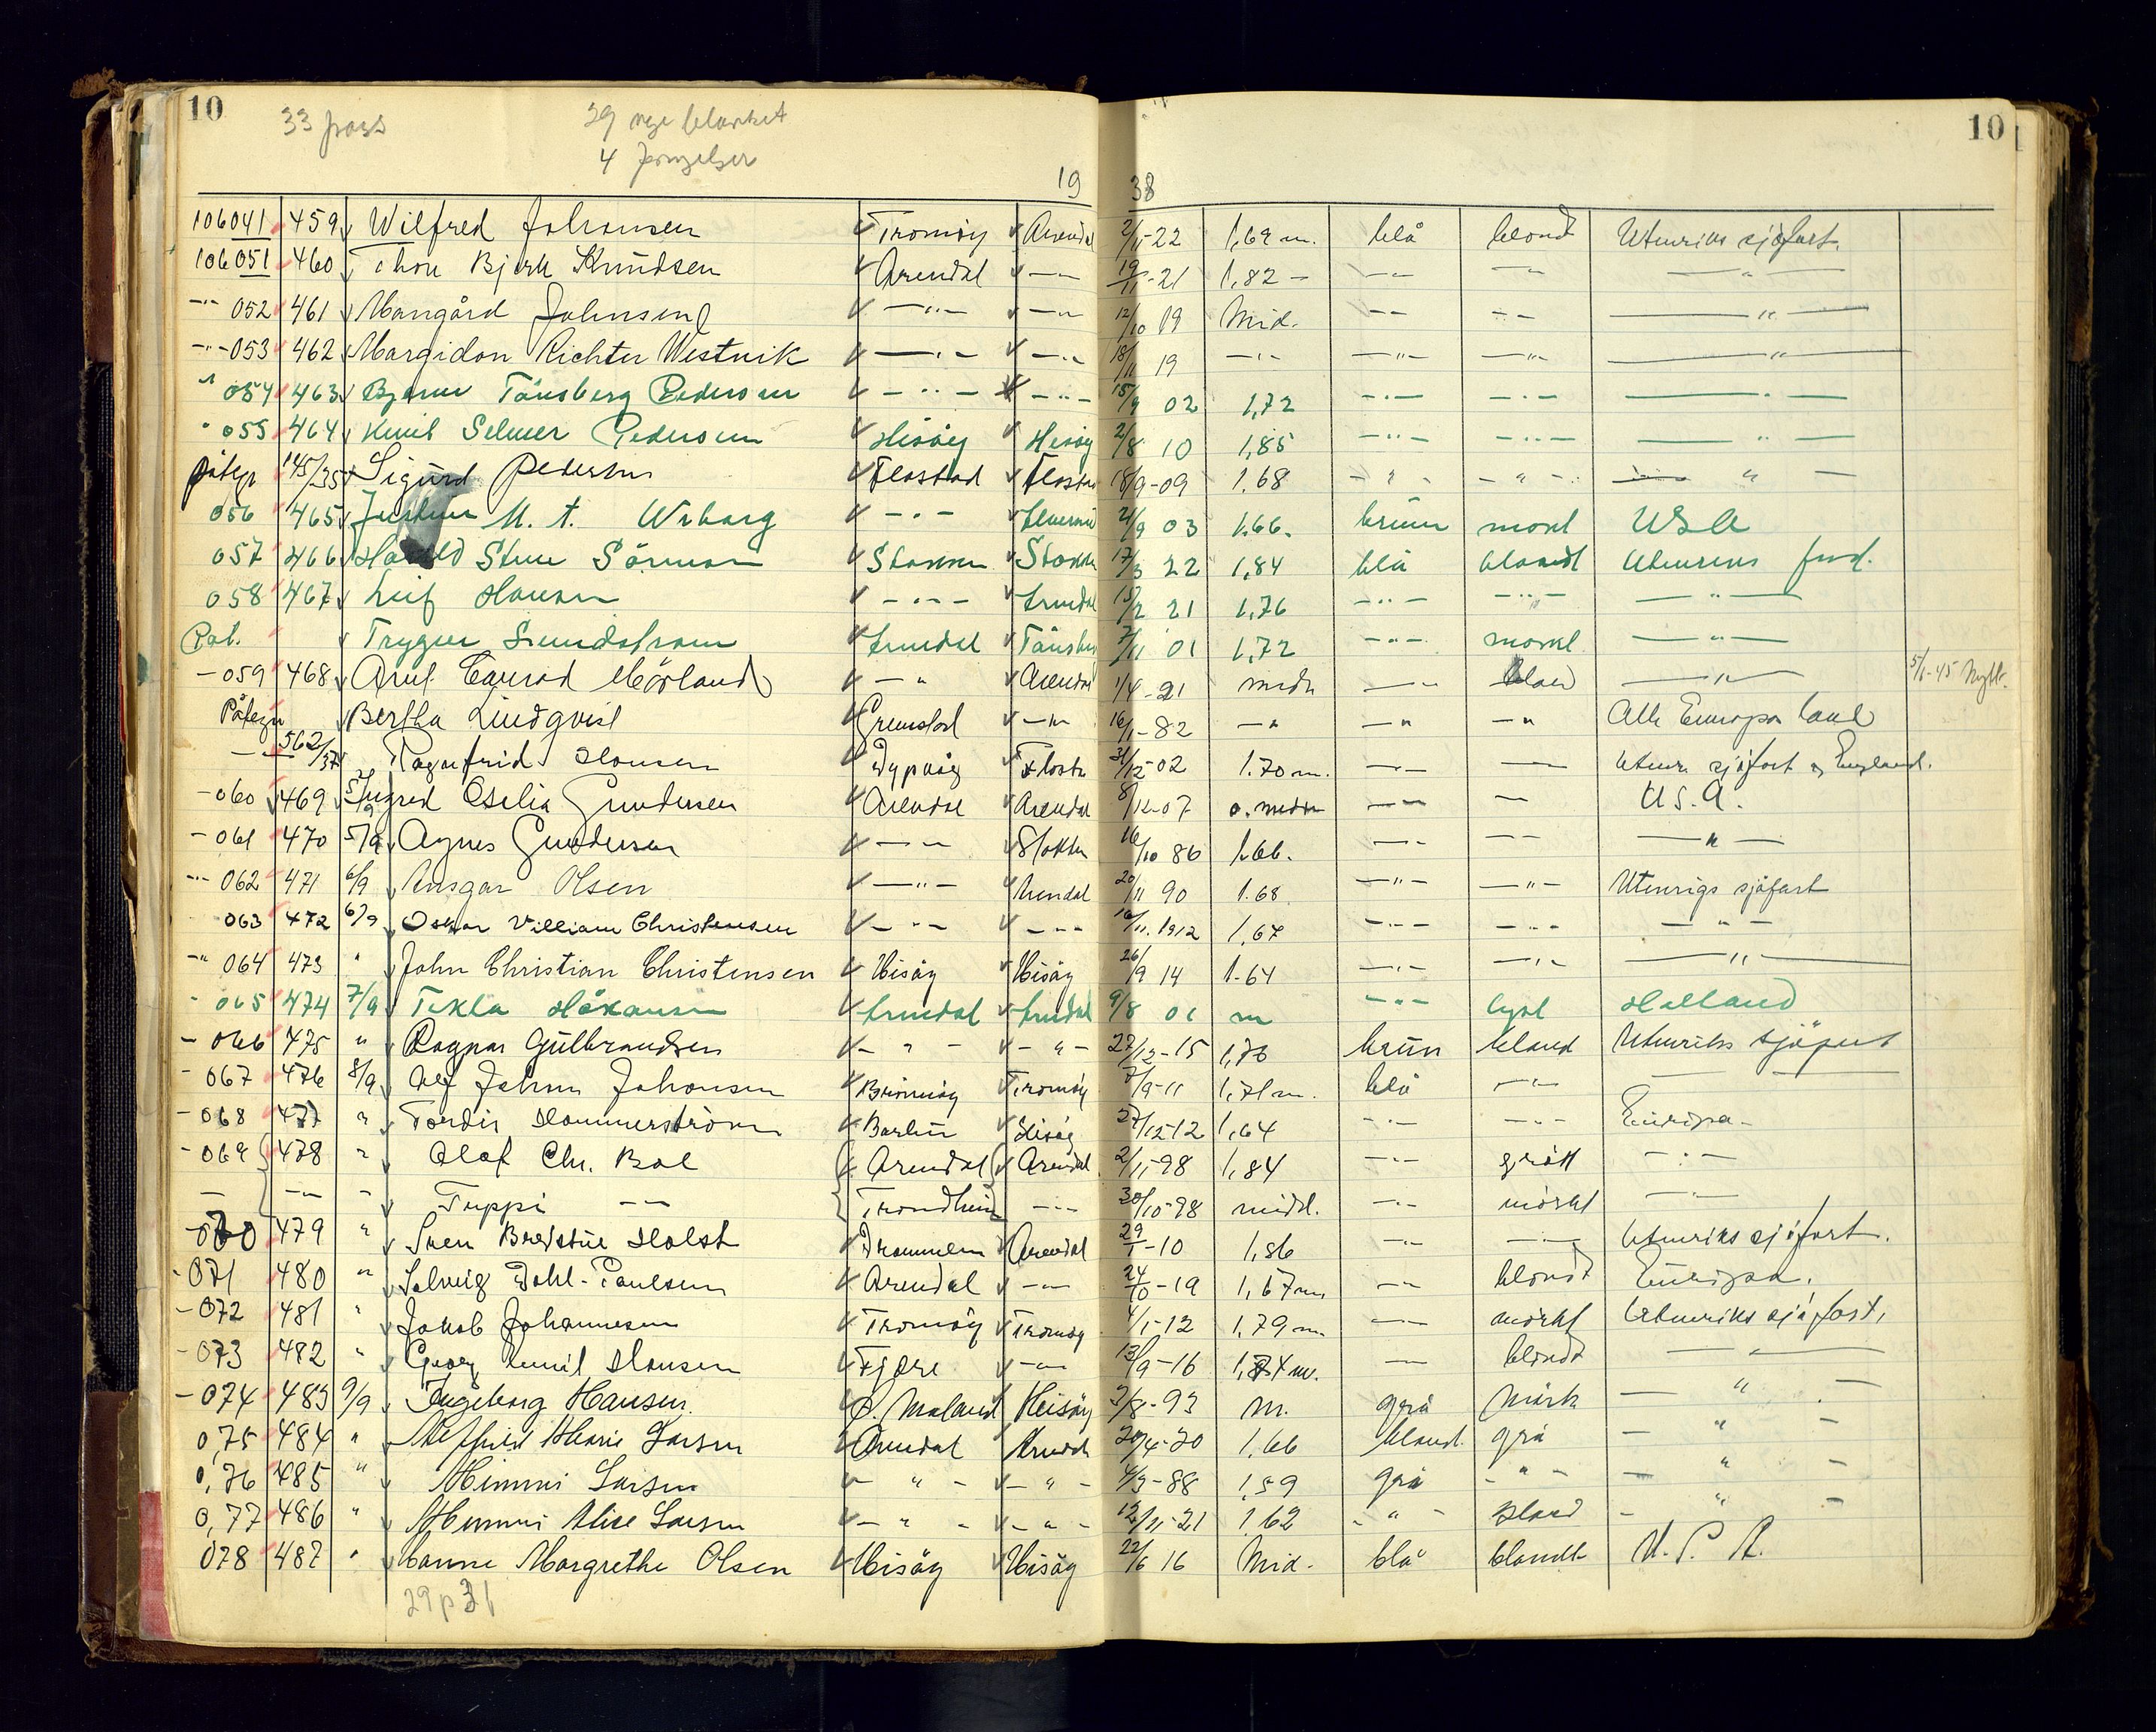 10 33 pass 29 nye blanket 10
4 fornyelser
19 38
106041 459 Wilfred Johansen Tromöy Arendal 2/11-22 1,69 m. blå blond Utenriks sjöfart.
106051 460 Thore Bjarne Knudsen Arendal -"- 19/11-21 1,82 - -"- -"- -"-
-"- 052 461 Mangård Johnsen -"- -"- 12/10 19 Mid. -"- -"- -"-
-"- 053 462 Margidon Richter Westvik -"- -"- 18/11 19 -"- -"- -"- -"-
" 054 463 Bjarne Tönsberg Pedersen -"- -"- 15/9 02 1,72 -"- -"- -"-
" 055 464 Emil Selmer Pedersen Hisöy Hisöy 2/8 10 1,85 -"- -"- -"-
Påtegn 145/35 Sigurd Pedersen Flostad Flosta 18/9-09 1.68 -"- -"- -"-
056 465 M. t. Wiborg -"- 21/9 03 1.66. brun mörk USA
057 466 Harald Stene Sörensen Stokken Stokken 17/3 22 1,84 blå blondt Utenriks fart.
058 467 Leif Hansen -"- Arendal 15/2 21 1,76 -"- -"- -"-
Pat. Trygve Sundstrøm Arendal Tönsberg 7/11 01 1,72 -"- mörkt -"-
- 059 468 Arnf. Conrad Mörland -"- Arendal 1/4-21 midr -"- blond -"- 5/1-45
Påtegn Bertha Lindqvist Grimstad -"- 16/1-82 -"- -"- -"- Alle Europas land
-"- 562/37 Ragnfrid Hansen Dypvåg Flosta 31/12-02 1.70 m. -"- -"- Utenr. sjöfart og England.
- 060 469 5/9 Ingrid Otelia Gundersen Arendal Arendal 8/12-07 o. midr -"- -"- U.S.A.
- 061 470 5/9 Agnes Gundersen -"- Stokken 16/10 86 1.66. -"- -"- -"-
-"- 062 471 6/9 Ansgar Olsen -"- Arendal 20/11 90 1.68 -"- -"- Utenrigs sjöfart
063 472 6/9 Oskar Villiam Christensen -"- -"- 16/11.1912 1,67 -"- -"- -"-
-"- 064 473 " John Christian Christensen Hisöy Hisöy 26/9 14 1.64 -"- -"- -"-
- 065 474 7/9 Tekla Håkansen Arendal Arendal 9/8 01 m -"- lyst Holland
- 066 475 " Ragnar Gulbrandsen -"- -"- 27/12-15 1,76 brun blond Utenriks sjöfart
- 067 476 8/9 Alf Johan Johansen Tromöy 7/9-11 1,71 m. blå -"- -"-
- 068 477 " Tordis Hammerström Berlin Hisöy 27/12-12 1,64 -"- -"- Europa -
- 069 478 " Olaf Chr. Boe Arendal Arendal 2/11-98 1,84 -"- grått -"-
- -"- - Tuppi -"- Trondheim -"- 30/10-98 midd. -"- mörkt -"-
- 070 479 " Sven Bredstue Holst Drammen Arendal 29/1-10 1,86 -"- -"- Utenriks sjöfart.
- 071 480 " Solveig Dahl-Paulsen Arendal -"- 24/10-19 1,67 m -"- blondt Europa.
- 072 481 " Jakob Johannesen Tromöy Tromöy 4/1-12 1,79 m. -"- mörkt Utenriks sjöfart,
- 073 482 " Georg Emil Hansen Fjære -"- 13/9-16 1,74 m. -"- blondt -"-
- 074 483 9/9 Ingeborg Hansen. Ö. Moland Heisöy 3/8-93 m. grå Mörk -"-
0,75 484 " Marie Larsen Arendal Arendal 20/4-20 1,66 bland. grå -"-
0,76 485 " Mimmi Larsen -"- -"- 4/3-88 1,59 grå -"- -"-
0,77 486 " Mimmi Alice Larsen -"- -"- 12/11-21 1.62 -"- blond -"-
078 487 " Hanne Margrethe Olsen Hisöy Hisöy 22/6 16 Mid. blå blondt U.S.A.
29 p 31